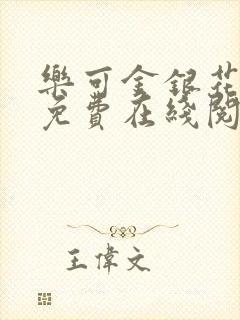 樂可金銀花
免費在綫閱
王偉文